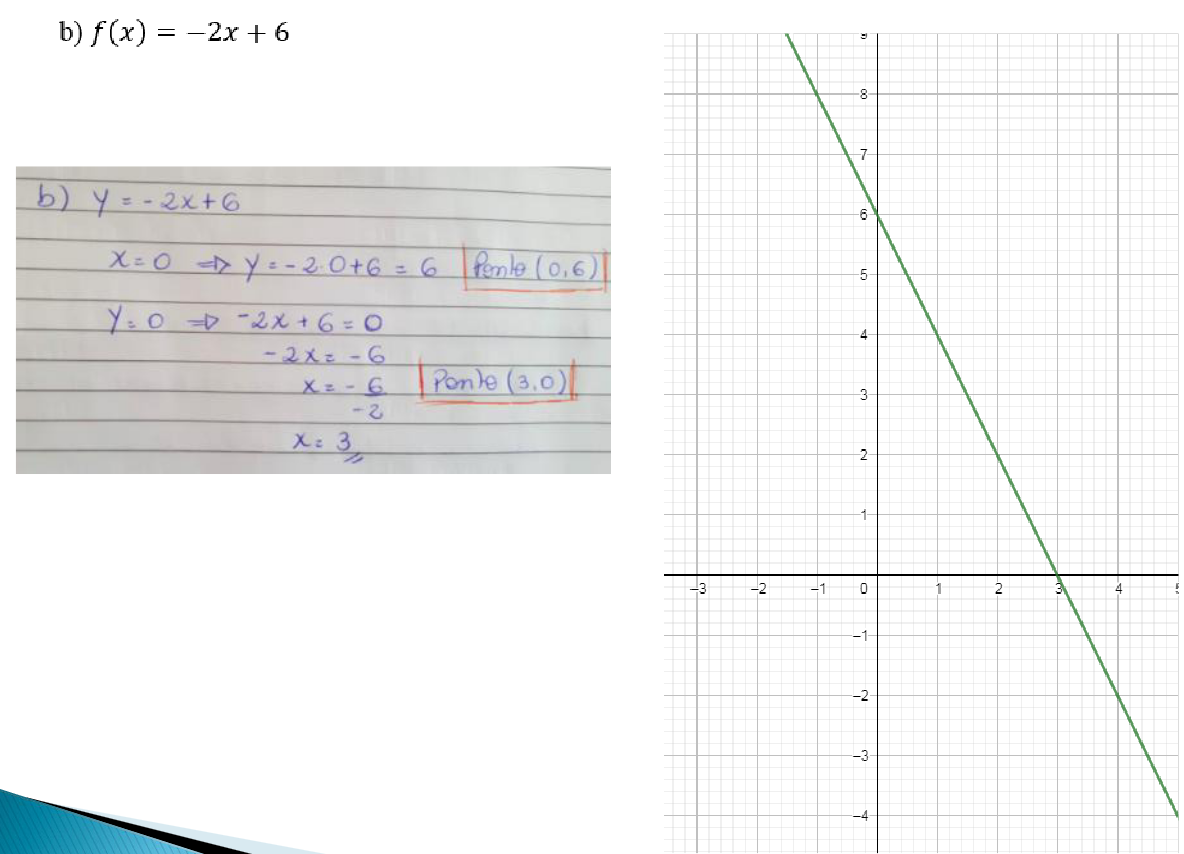 b) f(x) = −2x + 6
b) y = - 2x+6
x = 0 ⇒ y = - 2.0+6 = 6 Ponto (0,6)
y = 0 ⇒ -2x + 6 = 0
- 2x = - 6
x = - 6
-2
Ponto (3,0)
x = 3
9
8
7
6
5
4
3
2
1
−3 −2 −1 0 1 2 3 4 5
−1
−2
−3
−4